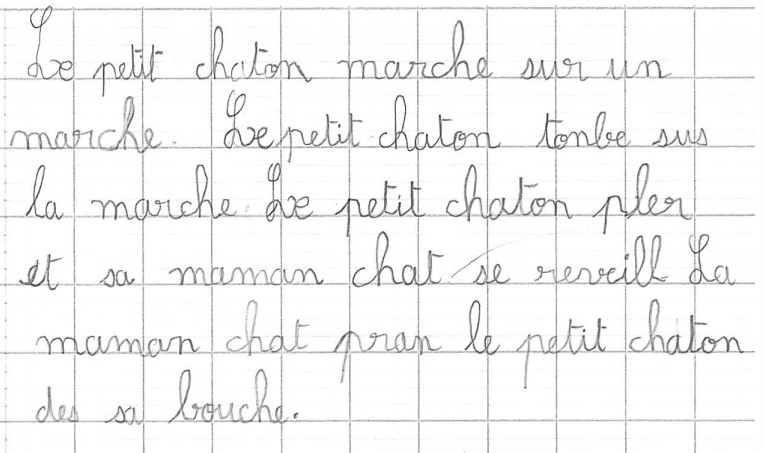 Le petit chaton marche sur un
marche. Le petit chaton tonbe sus
la marche. Le petit chaton pler
et sa maman chat se reveill La
maman chat pran le petit chaton
des sa bouche.